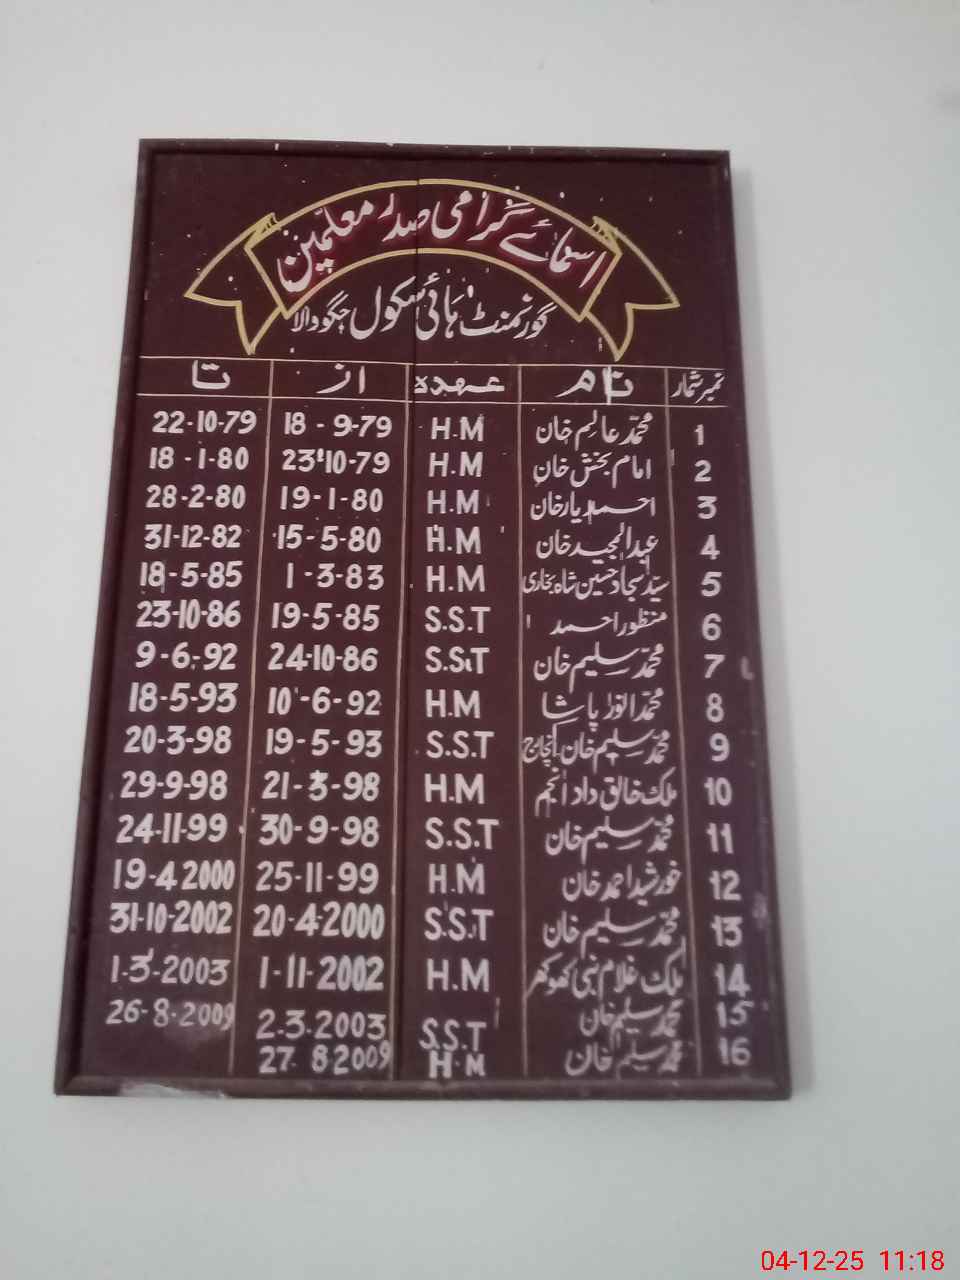 اسمائے گرامی صدر معلمین
گورنمنٹ ہائی سکول جگو والا
نمبر شمار نام عہدہ از تا
1 محمد عالم خان H.M 18-9-79 22-10-79
2 امام بخش خان H.M 23-10-79 18-1-80
3 احمد یار خان H.M 19-1-80 28-2-80
4 عبدالمجید خان H.M 15-5-80 31-12-82
5 سید سجاد حسین شاہ بخاری H.M 1-3-83 18-5-85
6 منظور احمد S.S.T 19-5-85 23-10-86
7 محمد سلیم خان S.S.T 24-10-86 9-6-92
8 محمد انور پاشا H.M 10-6-92 18-5-93
9 محمد سلیم خان انچارج S.S.T 19-5-93 20-3-98
10 ملک خالق داد انجم H.M 21-3-98 29-9-98
11 محمد سلیم خان S.S.T 30-9-98 24-11-99
12 خورشید احمد خان H.M 25-11-99 19-4-2000
13 محمد سلیم خان S.S.T 20-4-2000 31-10-2002
14 ملک غلام نبی کھوکھر H.M 1-11-2002 1-3-2003
15 محمد سلیم خان S.S.T 2.3.2003 26-8-2009
16 محمد سلیم خان H.M 27.8.2009
04-12-25 11:18